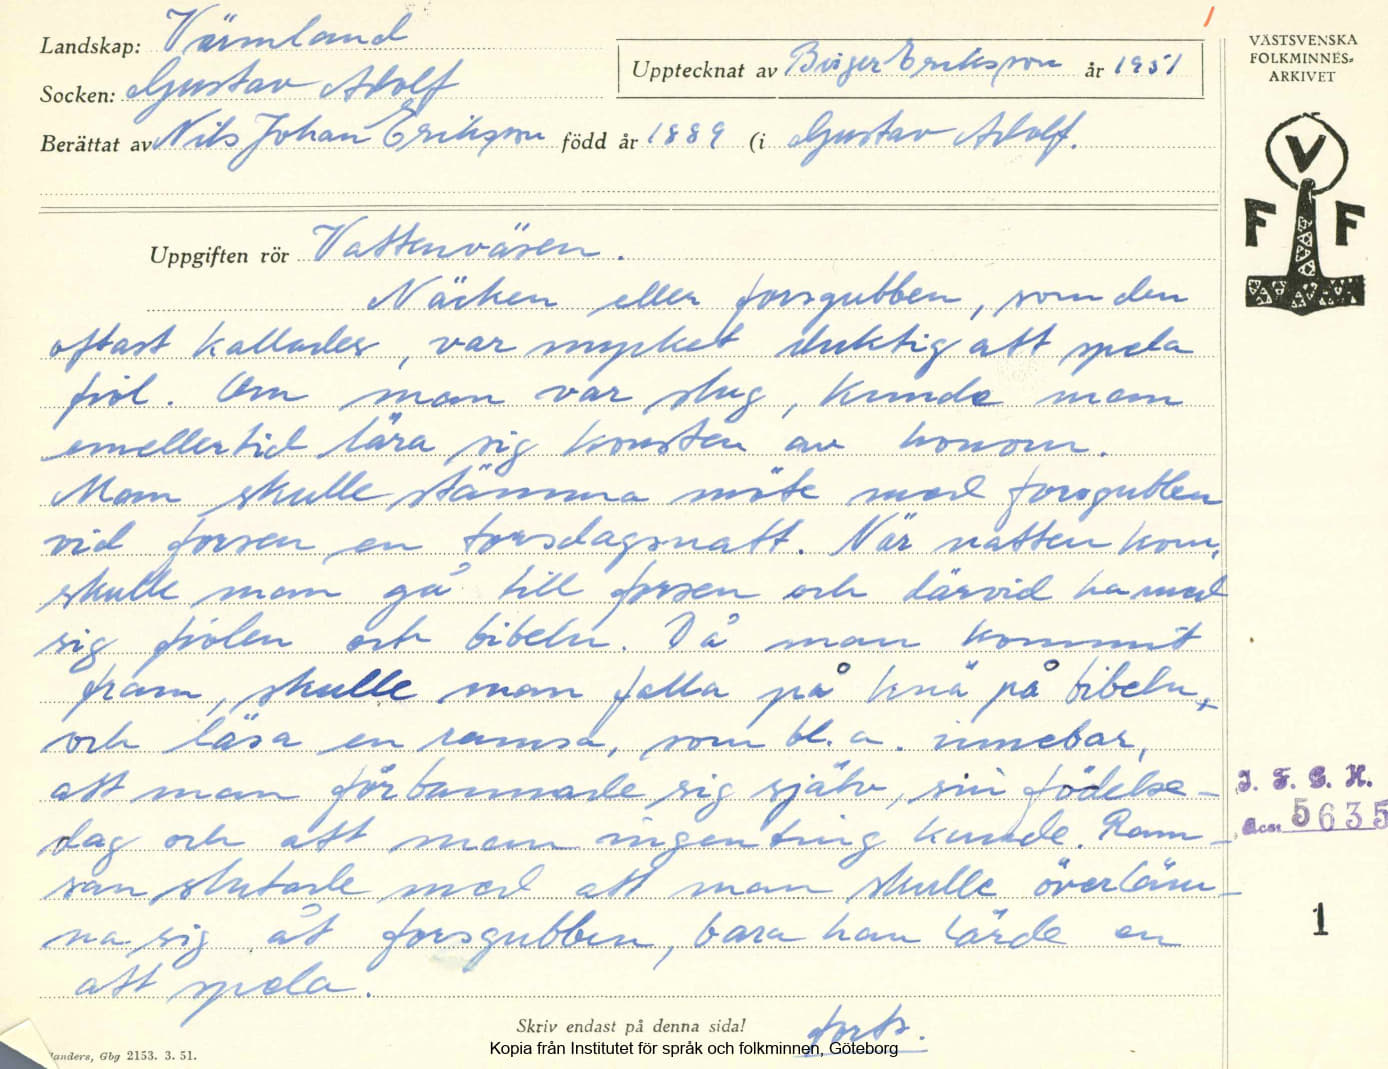 Landskap: Värmland
Socken: Gustav Adolf
Upptecknat av Birger Eriksson år 1951
Berättat av Nils Johan Eriksson född år 1889 (i Gustav Adolf.
Uppgiften rör Vattenväsen.
Näcken eller forsgubben, som den
oftast kallades, var mycket duktig att spela
fiol. Om man var slug, kunde man
emellertid lära sig konsten av honom.
Man skulle stämma möte med forsgubben
vid forsen en torsdagsnatt. När natten kom,
skulle man gå till forsen och därvid ha med
sig fiolen och bibeln. Då man kommit
fram, skulle man falla på knä på bibeln,
och läsa en ramsa, som bl. a. innebar,
att man förbannade sig själv, sin födelse-
dag och att man ingenting kunde. Ram-
san slutade med att man skulle överläm-
na sig åt forsgubben, bara han lärde en
att spela.
forts.
Skriv endast på denna sida!
Kopia från Institutet för språk och folkminnen, Göteborg
landers, Gbg 2153. 3. 51.
VÄSTSVENSKA
FOLKMINNES-
ARKIVET
V
F F
I. F. G. H.
Acc. 5635
1